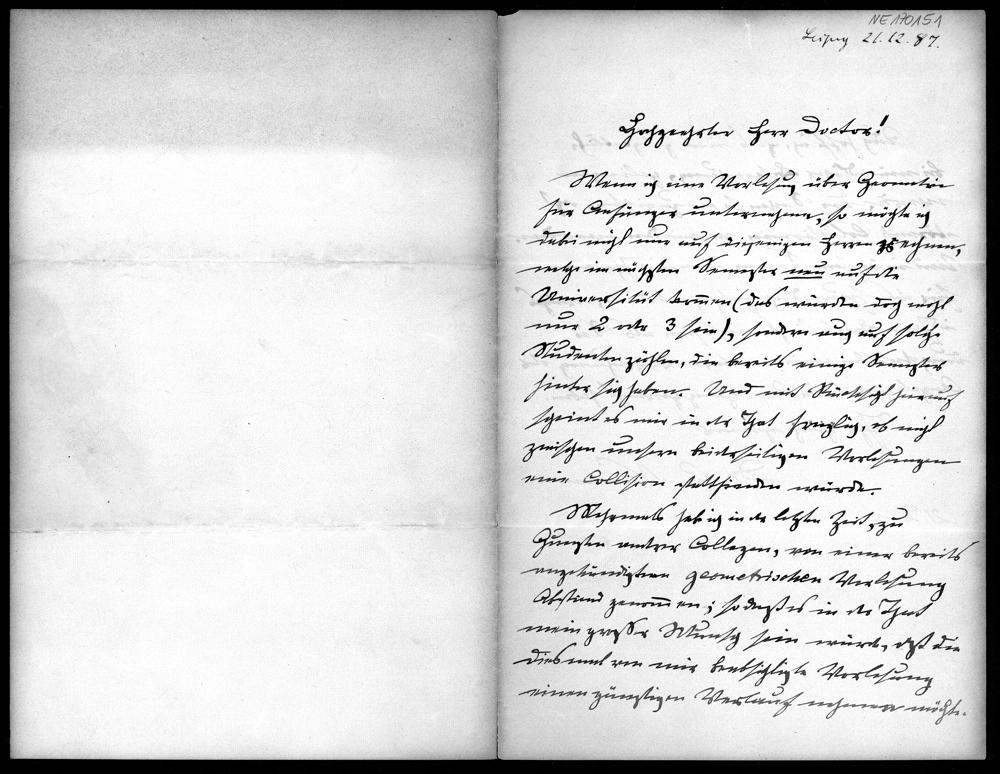 NE170151
Leipzig 21.12.87.
Hochgeehrter Herr Doctor!
Wenn ich eine Vorlesung über Geometrie
für Anfänger unternehme, so möchte ich
dabei nicht nur auf diejenigen Herren rechnen,
welche im nächsten Semester neu auf die
Universität kommen (das würden doch wohl
nur 2 oder 3 sein), sondern auch auf solche
Studenten zählen, die bereits einige Semester
hinter sich haben. Und mit Rücksicht hierauf
scheint es mir in der That fraglich, ob nicht
zwischen unsern beiderseitigen Vorlesungen
eine Collision stattfinden würde.
Mehrmals hab ich in der letzten Zeit, zu
Gunsten anderer Collegen, von einer bereits
angekündigten geometrischen Vorlesung
Abstand genommen; sodaß es in der That
mein großer Wunsch sein würde, daß die
diesmal von mir beabsichtigte Vorlesung
einen günstigen Verlauf nehmen möchte.